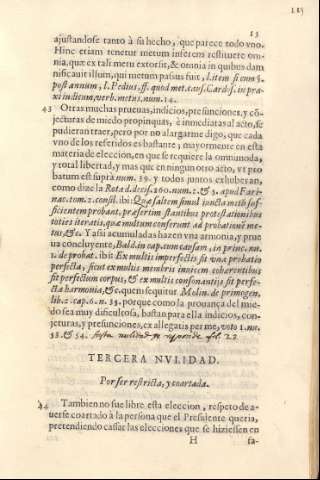 115
13
ajustandose tanto à su hecho, que parece todo vno.
Hinc etiam tenetur metum inferens restituere om-
nia, quæ ex tali metu extorsit, & omnia in quibus dam
nificauit illum, qui metum passus fuit, l. item si cum §.
post annum, l. Pedius, ff. quod met. caus. Card. s. in pra-
xi iudicum, verb. metus, num. 14.
43 Otras muchas prueuas, indicios, presunciones, y cō-
jecturas de miedo propinquas, è inmediatas al acto, se
pudieran traer, pero por no alargarme digo, que cada
vno de los referidos es bastante, mayormente en esta
materia de eleccion, en que se requiere la omnimoda,
y total libertad, y mas que en ningun otro acto, vt pro
batum est suprà num. 39. y todos juntos exhuberan,
como dize la Rota d. decis. 260. num. 2. & 3. apud Fari-
nac. tom. 2. consil. ibi: Quæ saltem simul iuncta mihi suf-
ficientem probant, præsertim stantibus protestationibus
toties iteratis, quæ multum conferunt ad probationē me-
tus, &c. Y assi acumuladas hazen vna armonia, y prue
ua concluyente, Bald. in cap. cum causam, in princ. nu.
1. de probat. ibi: Ex multis imperfectis sit vna probatio
perfecta, sicut ex multis membris inuicem cohærentibus
sit perfectum corpus, & ex multis consonantijs sit perfe-
cta harmonia, &c. quem sequitur Molin. de primogen.
lib. 2. cap. 6. n. 33. porque como la prouança del mie-
do sea muy dificultosa, bastan para ella indicios, con-
jeturas, y presunciones, ex allegatis per me, voto 1. nu.
53. & 54.
TERCERA NVLIDAD.
Por ser restricta, y coartada.
44 Tambien no fue libre esta eleccion, respeto de a-
uerse coartado à la persona que el Presidente queria,
pretendiendo cassar las elecciones que se hiziessen en
H sa-